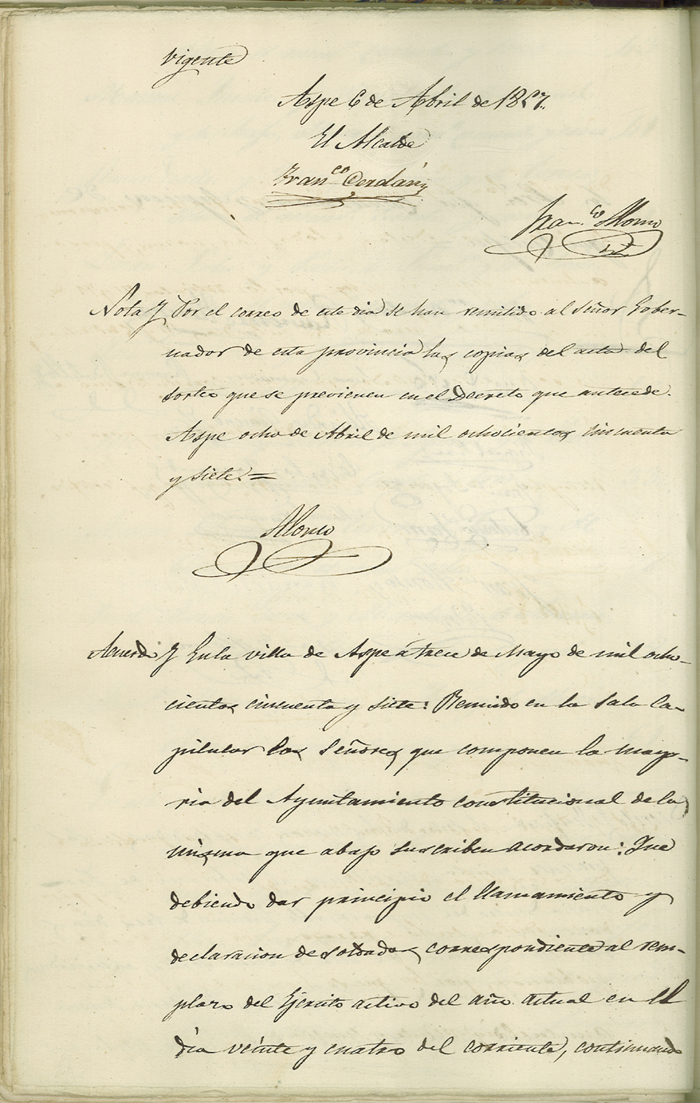 vigente
Aspe 6 de Abril de 1857.
El Alcalde
Fran.co Cerdán
Fran.co Alonso
Nota } Por el correo de este dia se han remitido al Señor Gober-
nador de esta provincia las copias del acta del
sorteo que se previenen en el Decreto que antecede.
Aspe ocho de Abril de mil ochocientos cincuenta
y siete. =
Alonso
Acuerdo } En la villa de Aspe á trece de Mayo de mil ocho-
cientos cincuenta y siete: Reunido en la Sala Ca-
pitular los Señores que componen la mayo-
ria del Ayuntamiento constitucional de la
misma que abajo suscriben acordaron: Que
debiendo dar principio el llamamiento y
declaracion de soldados correspondiente al reem-
plazo del Ejército activo del año actual en el
dia veinte y cuatro del corriente, continuando